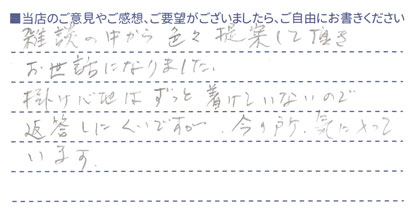 ■当店のご意見やご感想、ご要望がございましたら、ご自由にお書きください
雑談の中から色々提案して頂き
お世話になりました。
掛け心地はずっと着けていないので
返答しにくいですが、今の所、気に入って
います。